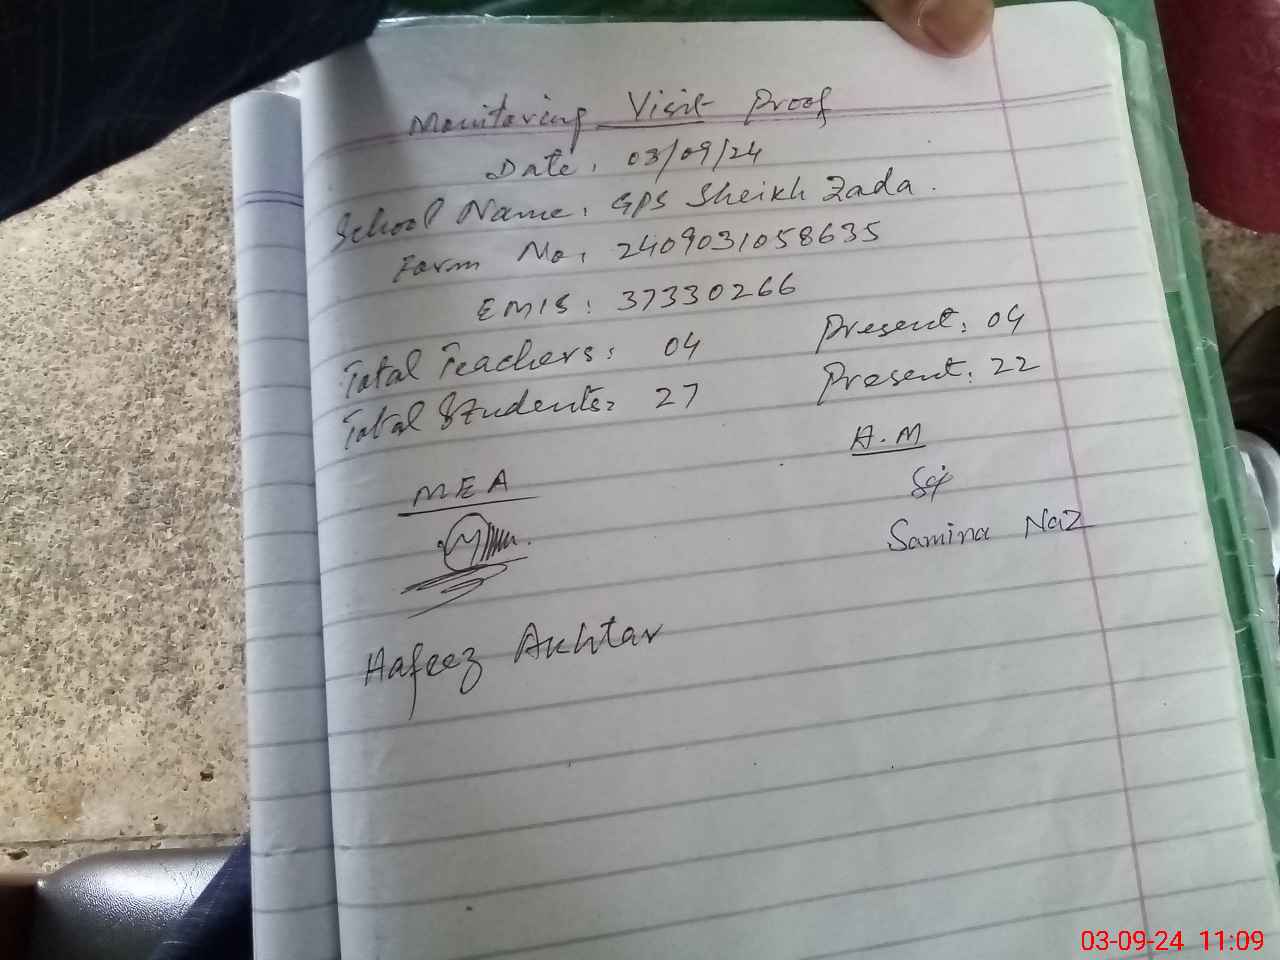 Monitoring Visit Proof
Date: 03/09/24
School Name: GPS Sheikh Zada.
Form No: 2409031058635
EMIS: 37330266
Total Teachers: 04 Present: 04
Total Students: 27 Present: 22
MEA A.M
Samina Naz
Hafeez Akhtar
03-09-24 11:09